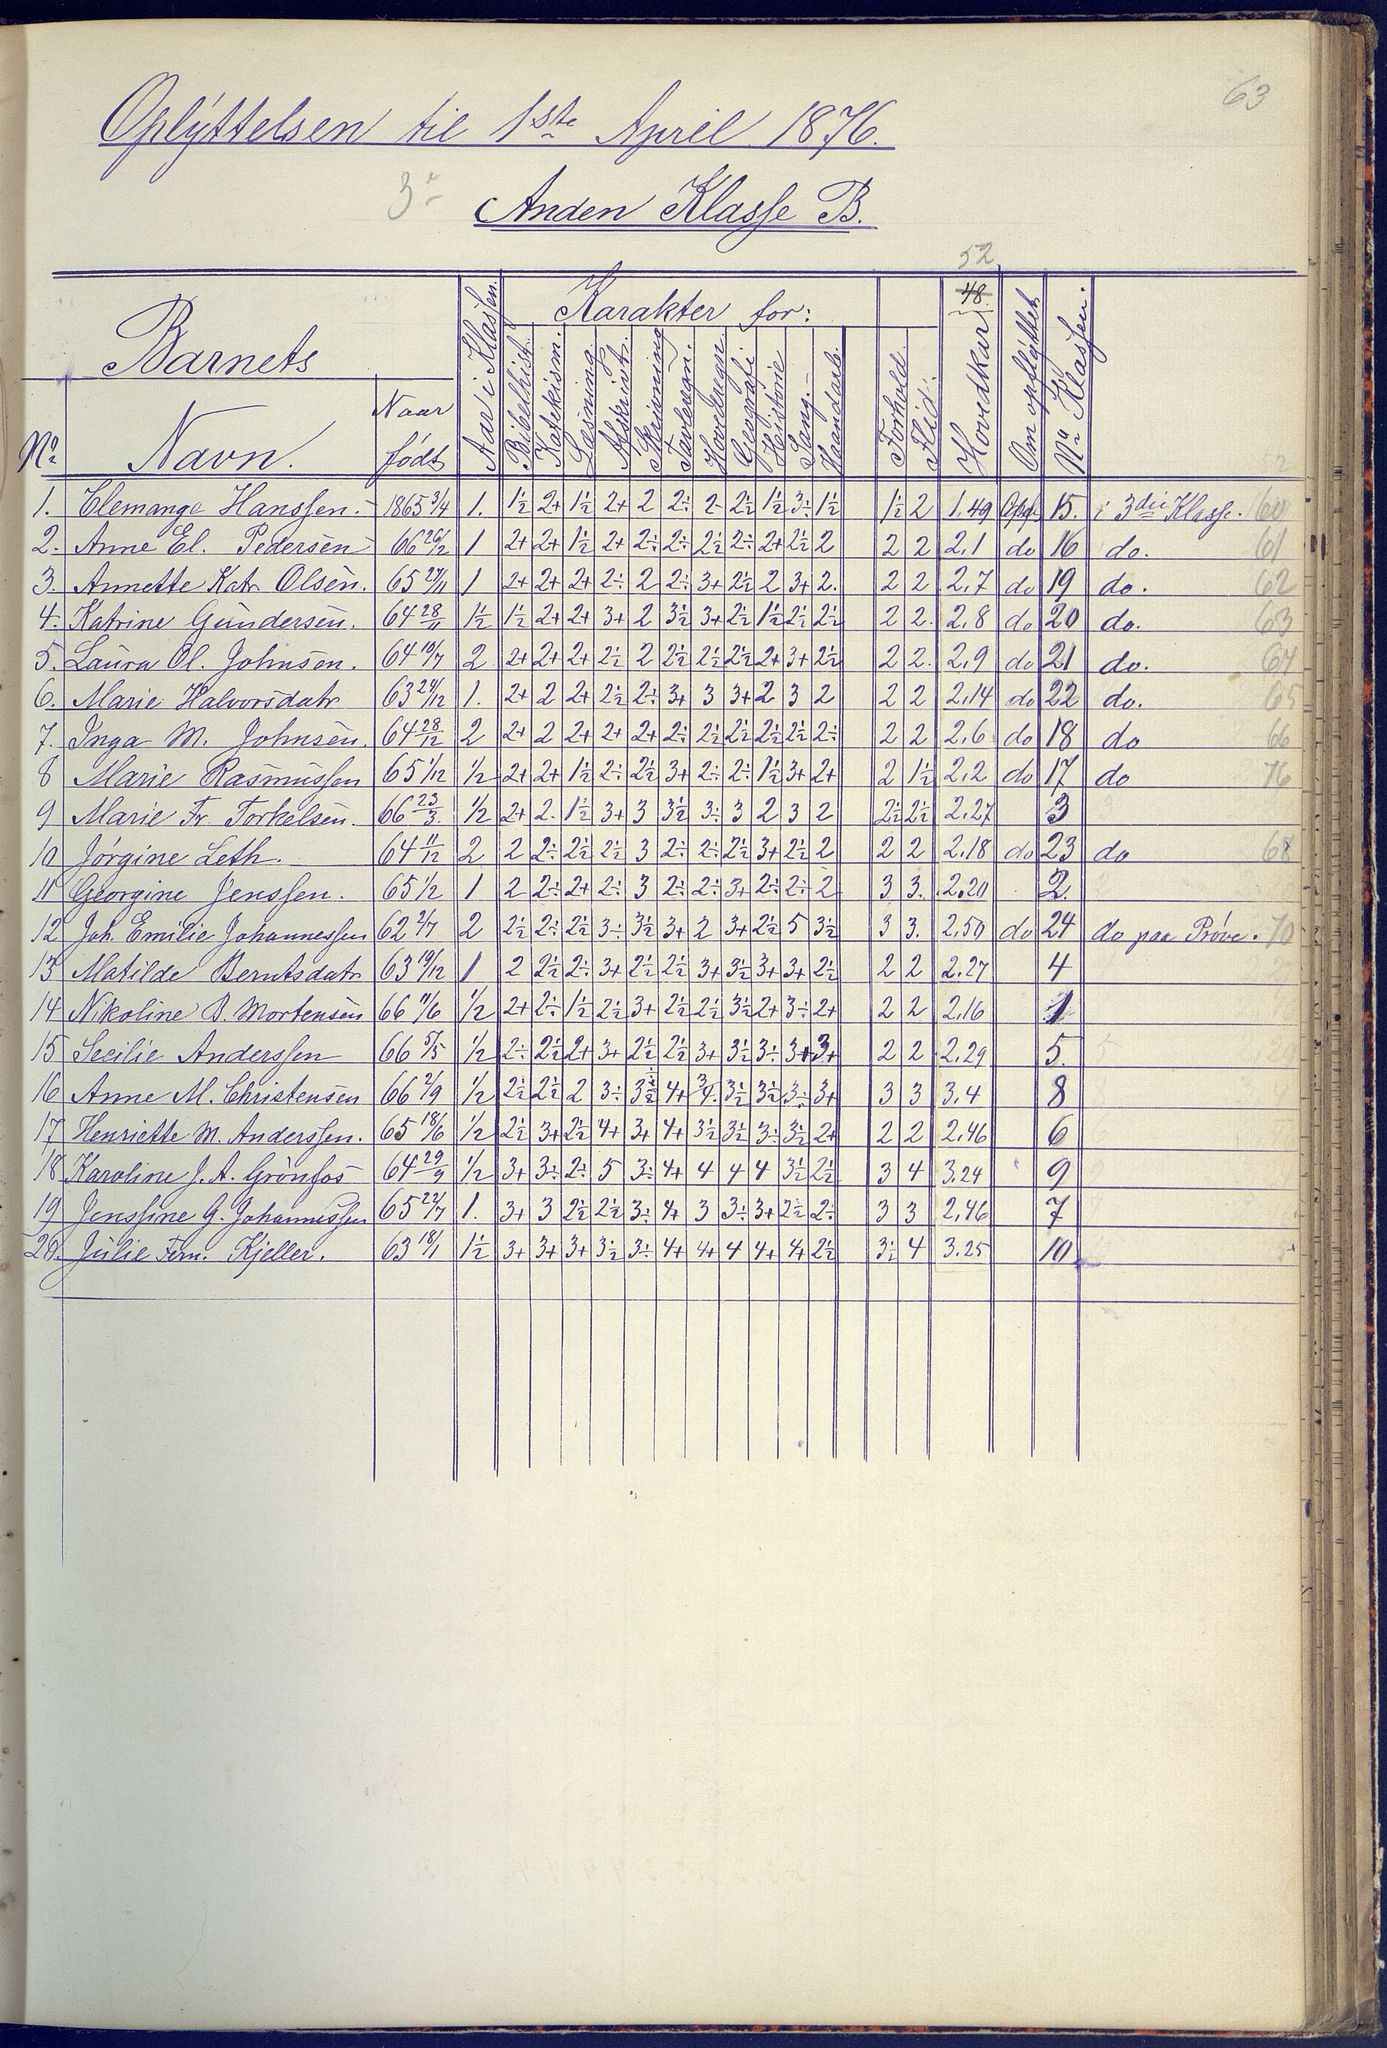 63
Oplyttelsen til 1ste April 1876.
3e
Anden Klasse B.
52
48.
Barnets
Karakter for:
No
Navn.
Naar født
Aar i Klassen.
Bibelhist.
Katekism.
Læsning
Afskrivt.
Skrivning
Tavleregn.
Hovedregn.
Geografi
Historie
Sang.
Haandarb.
Forhold.
Flid.
Hovedkar
Om oplyttet
No i Klassen.
52
1. Elemange Hanssen. 1865 3/4 1. 1½ 2+ 1½ 2+ 2 2÷ 2- 2½ 1½ 3÷ 1½ 1½ 2 1.49 Opl. 15. i 3die Klasse. 60
2. Anne El. Pedersen 66 26/12 1 2+ 2+ 1½ 2+ 2÷ 2÷ 2½ 2÷ 2+ 2½ 2 2 2 2.1 do 16 do. 61
3. Annette Katr. Olsen. 65 27/11 1 2+ 2+ 2+ 2÷ 2 2÷ 3+ 2½ 2 3+ 2. 2 2 2.7 do 19 do. 62
4. Katrine Gundersen. 64 28/11 1½ 1½ 2+ 2+ 3+ 2 3½ 3+ 2½ 1½ 2½ 2½ 2 2. 2.8 do 20 do. 63
5. Laura Ol. Johnsen. 64 19/7 2 2+ 2+ 2+ 2½ 2 2½ 2½ 2½ 2+ 3+ 2½ 2 2. 2.9 do 21 do. 64
6. Marie Halvorsdatr 63 24/12 1. 2+ 2 2+ 2½ 2÷ 3+ 3 3+ 2 3 2 2 2 2.14 do 22 do. 65
7. Inga M. Johnsen. 64 28/12 2 2+ 2 2+ 2+ 2+ 2÷ 2½ 2½ 2½ 2½ 2÷ 2 2 2.6 do 18 do 66
8 Marie Rasmussen 65 1/12 1/2 2+ 2+ 1½ 2÷ 2½ 3+ 2÷ 2÷ 1½ 3+ 2+ 2 1½ 2.2 do 17 do 76
9 Marie Fr. Torkelsen. 66 23/3. 1/2 2+ 2. 1½ 3+ 3 3½ 3÷ 3 2 3 2 2½ 2½ 2.27 3
10 Jørgine Leth. 64 11/12 2 2 2÷ 2½ 2½ 3 2÷ 2÷ 2½ 3+ 2½ 2 2 2 2.18 do 23 do 68
11 Georgine Jenssen. 65 1/2 1 2 2÷ 2+ 2÷ 3 2÷ 2÷ 3+ 2÷ 2÷ 2 3 3. 2.20 2.
12 Joh. Emilie Johannessen 62 2/7 2 2½ 2÷ 2½ 3÷ 3½ 3+ 2 3+ 2½ 5 3½ 3 3. 2.50 do 24 do paa Prøve. 70
13 Matilde Berntsdatr 63 19/12 1 2 2½ 2÷ 3+ 2½ 2½ 3+ 3½ 3+ 3+ 2½ 2 2 2.27 4
14 Nikoline B. Mortensen 66 11/6 1/2 2+ 2÷ 1½ 2½ 3+ 2½ 2½ 3½ 2+ 3÷ 2+ 2 2 2.16 1
15 Secilie Anderssen 66 5/5 1/2 2÷ 2½ 2+ 3+ 2½ 2½ 3+ 3½ 3÷ 3+ 3+ 2 2 2.29 5.
16 Anne M. Christensen 66 2/9 1/2 2½ 2½ 2 3÷ 3½ 4+ 3 3½ 3½ 3÷ 3+ 3 3 3.4 8
17 Henriette M. Anderssen. 65 18/6 1/2 2½ 3+ 2½ 4+ 3+ 4+ 3½ 3½ 3÷ 3½ 2+ 2 2 2.46 6
18 Karoline J. A. Grönfos 64 29/9 1/2 3+ 3÷ 2÷ 5 3÷ 4+ 4 4 4 3½ 2½ 3 4 3.24 9
19 Jenssine G. Johannessen 65 22/7 1. 3+ 3 2½ 2½ 3÷ 4+ 3 3÷ 3+ 2½ 2÷ 3 3 2.46 7
20. Julie Fern. Kjeller. 63 18/1 1½ 3+ 3+ 3+ 3½ 3÷ 4+ 4+ 4 4+ 4+ 2½ 3½ 4 3.25 10